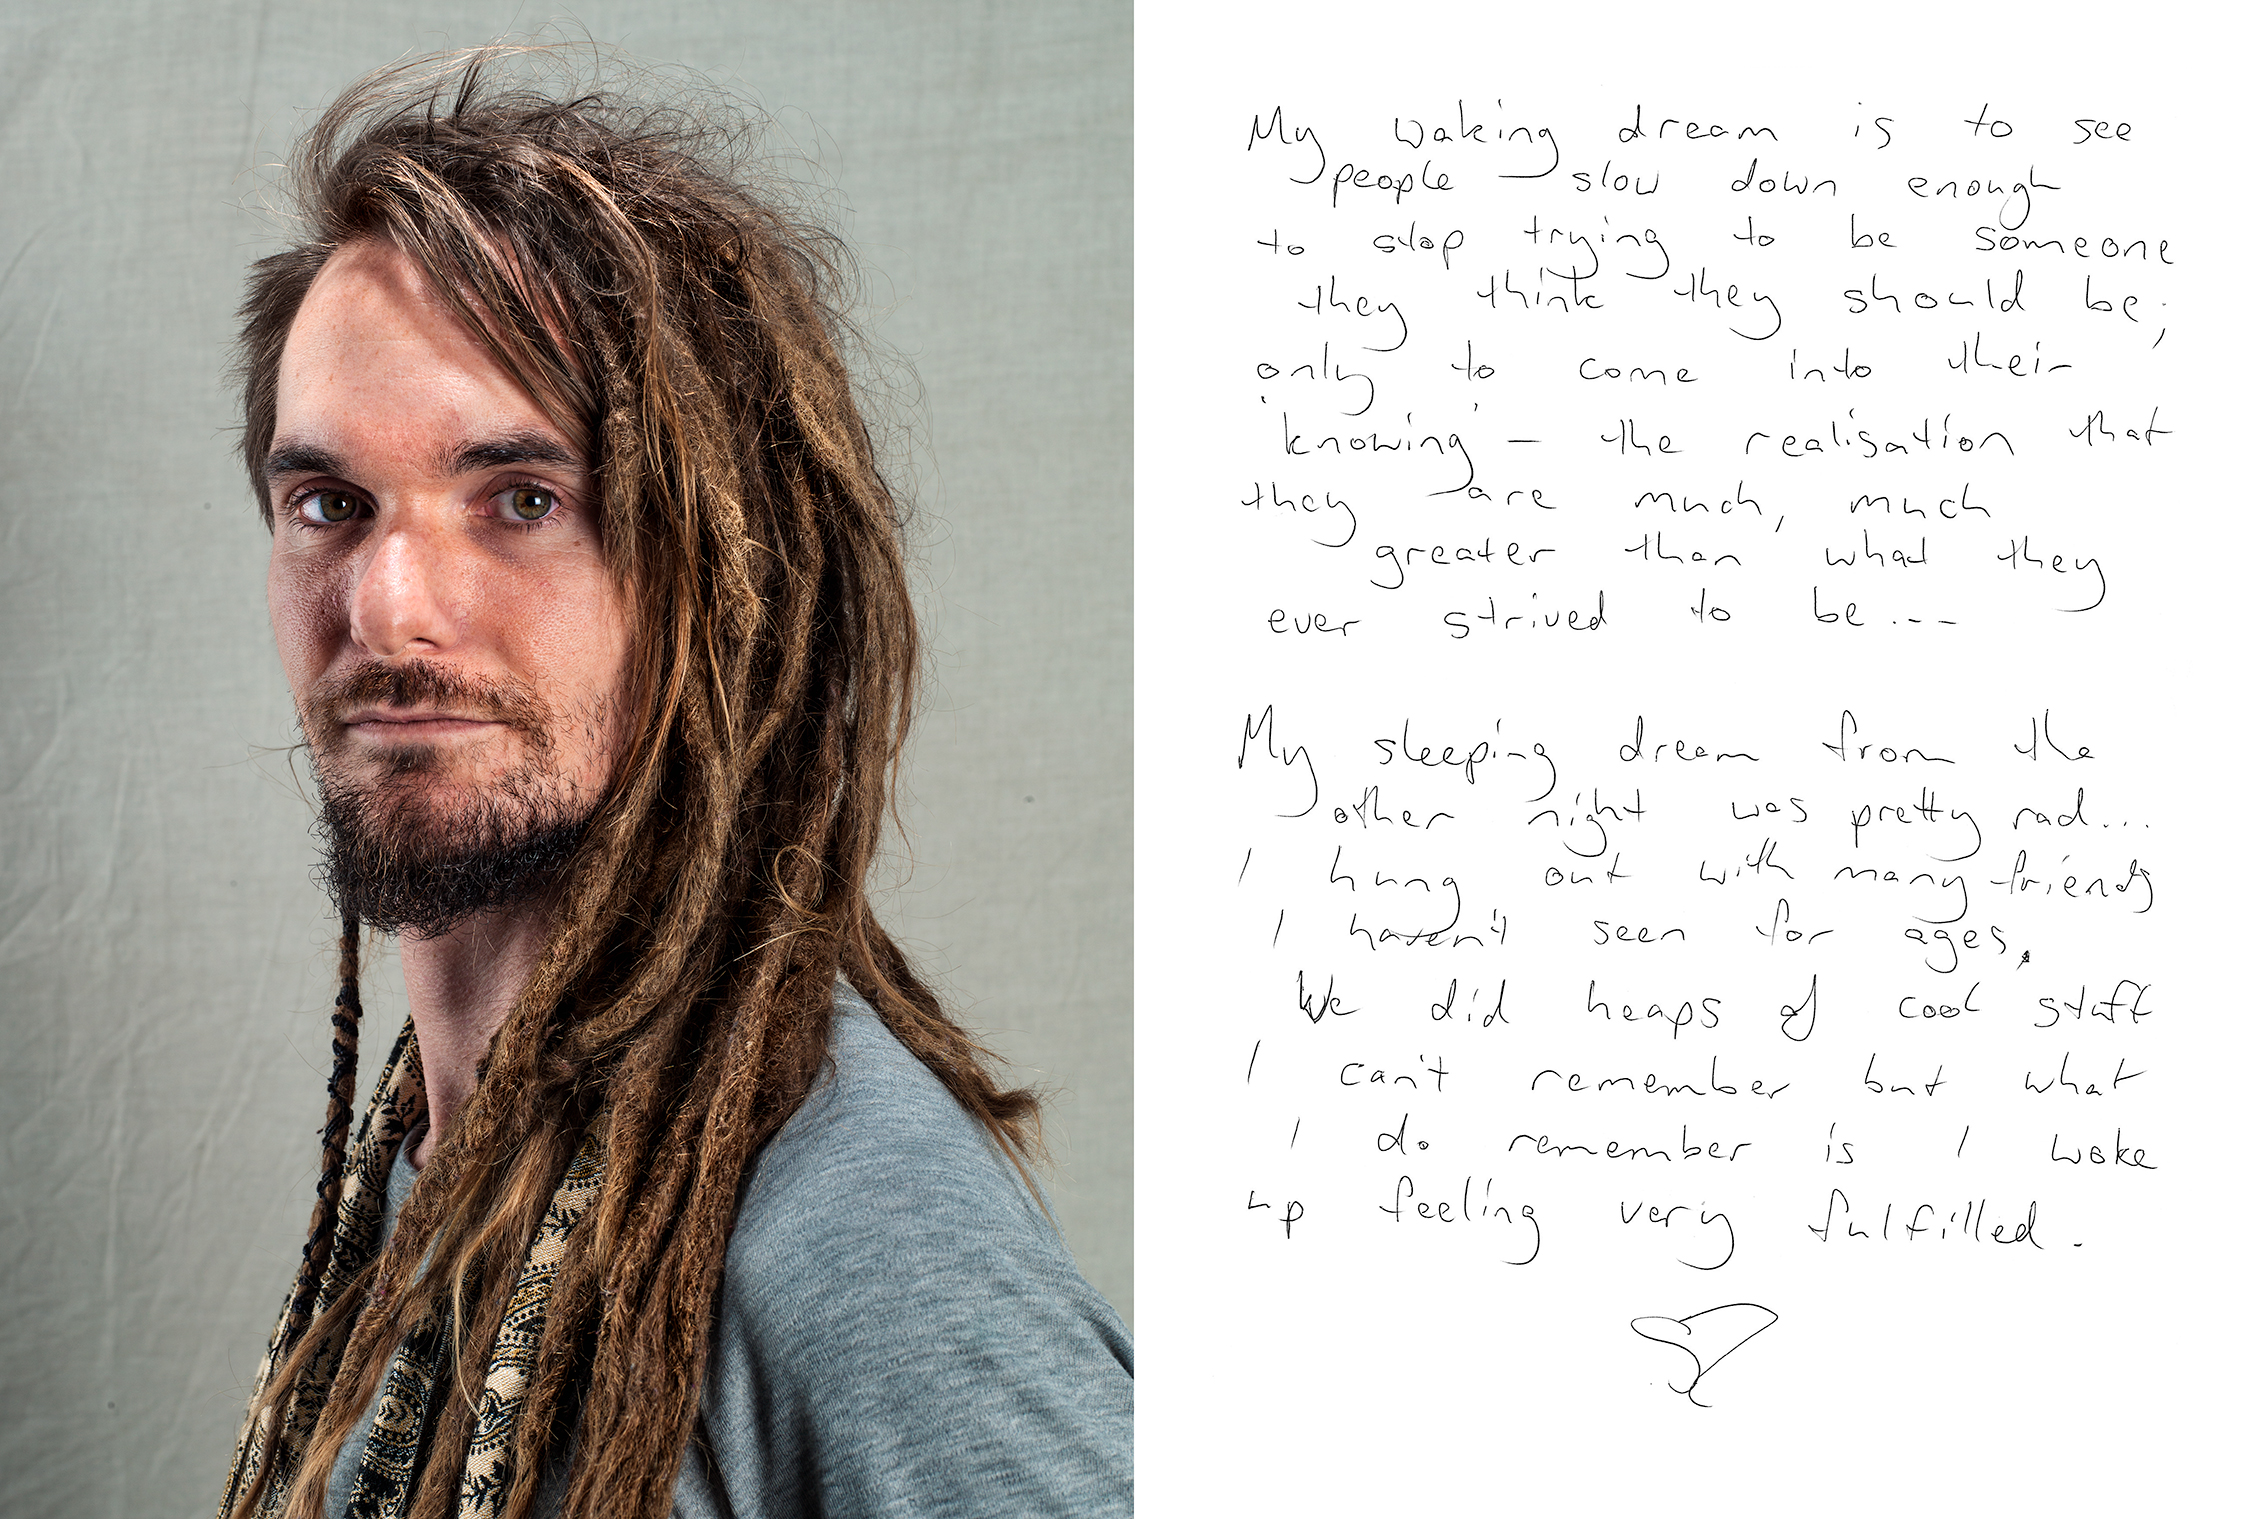 My waking dream is to see
people slow down enough
to stop trying to be someone
they think they should be;
only to come into their
'knowing' – the realisation that
they are much, much
greater than what they
ever strived to be...
My sleeping dream from the
other night was pretty rad...
I hung out with many friends
I haven't seen for ages.
We did heaps of cool stuff
I can't remember but what
I do remember is I woke
up feeling very fulfilled.